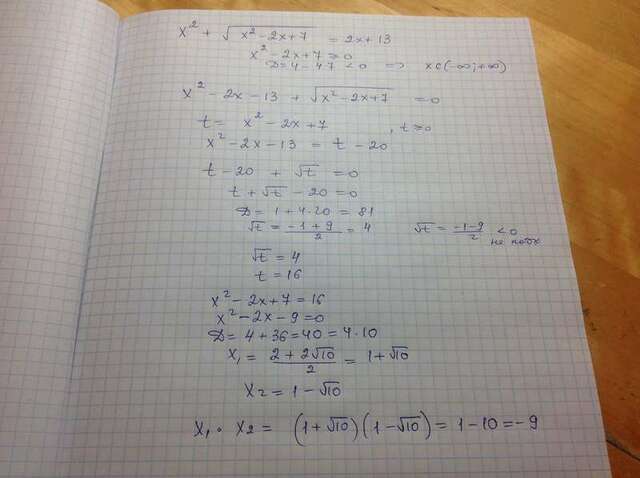 x² + √(x² - 2x + 7) = 2x + 13
x² - 2x + 7 ≥ 0
D = 4 - 4·7 < 0 ⇒ x ∈ (-∞; +∞)
x² - 2x - 13 + √(x² - 2x + 7) = 0
t = x² - 2x + 7 , t ≥ 0
x² - 2x - 13 = t - 20
t - 20 + √t = 0
t + √t - 20 = 0
D = 1 + 4·20 = 81
√t = (-1 + 9)/2 = 4 √t = (-1 - 9)/2 < 0
не подх
√t = 4
t = 16
x² - 2x + 7 = 16
x² - 2x - 9 = 0
D = 4 + 36 = 40 = 4·10
x₁ = (2 + 2√10)/2 = 1 + √10
x₂ = 1 - √10
x₁ · x₂ = (1 + √10)(1 - √10) = 1 - 10 = -9